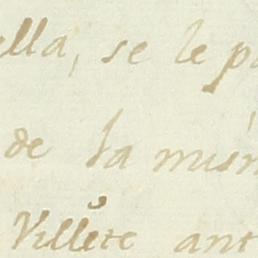 ella, se le p
de la mism
Villete ant